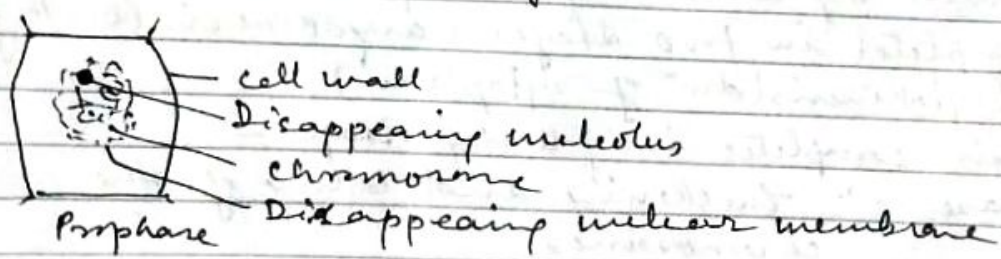 cell wall
Disappearing nucleolus
chromosome
Disappearing nuclear membrane
Prophase